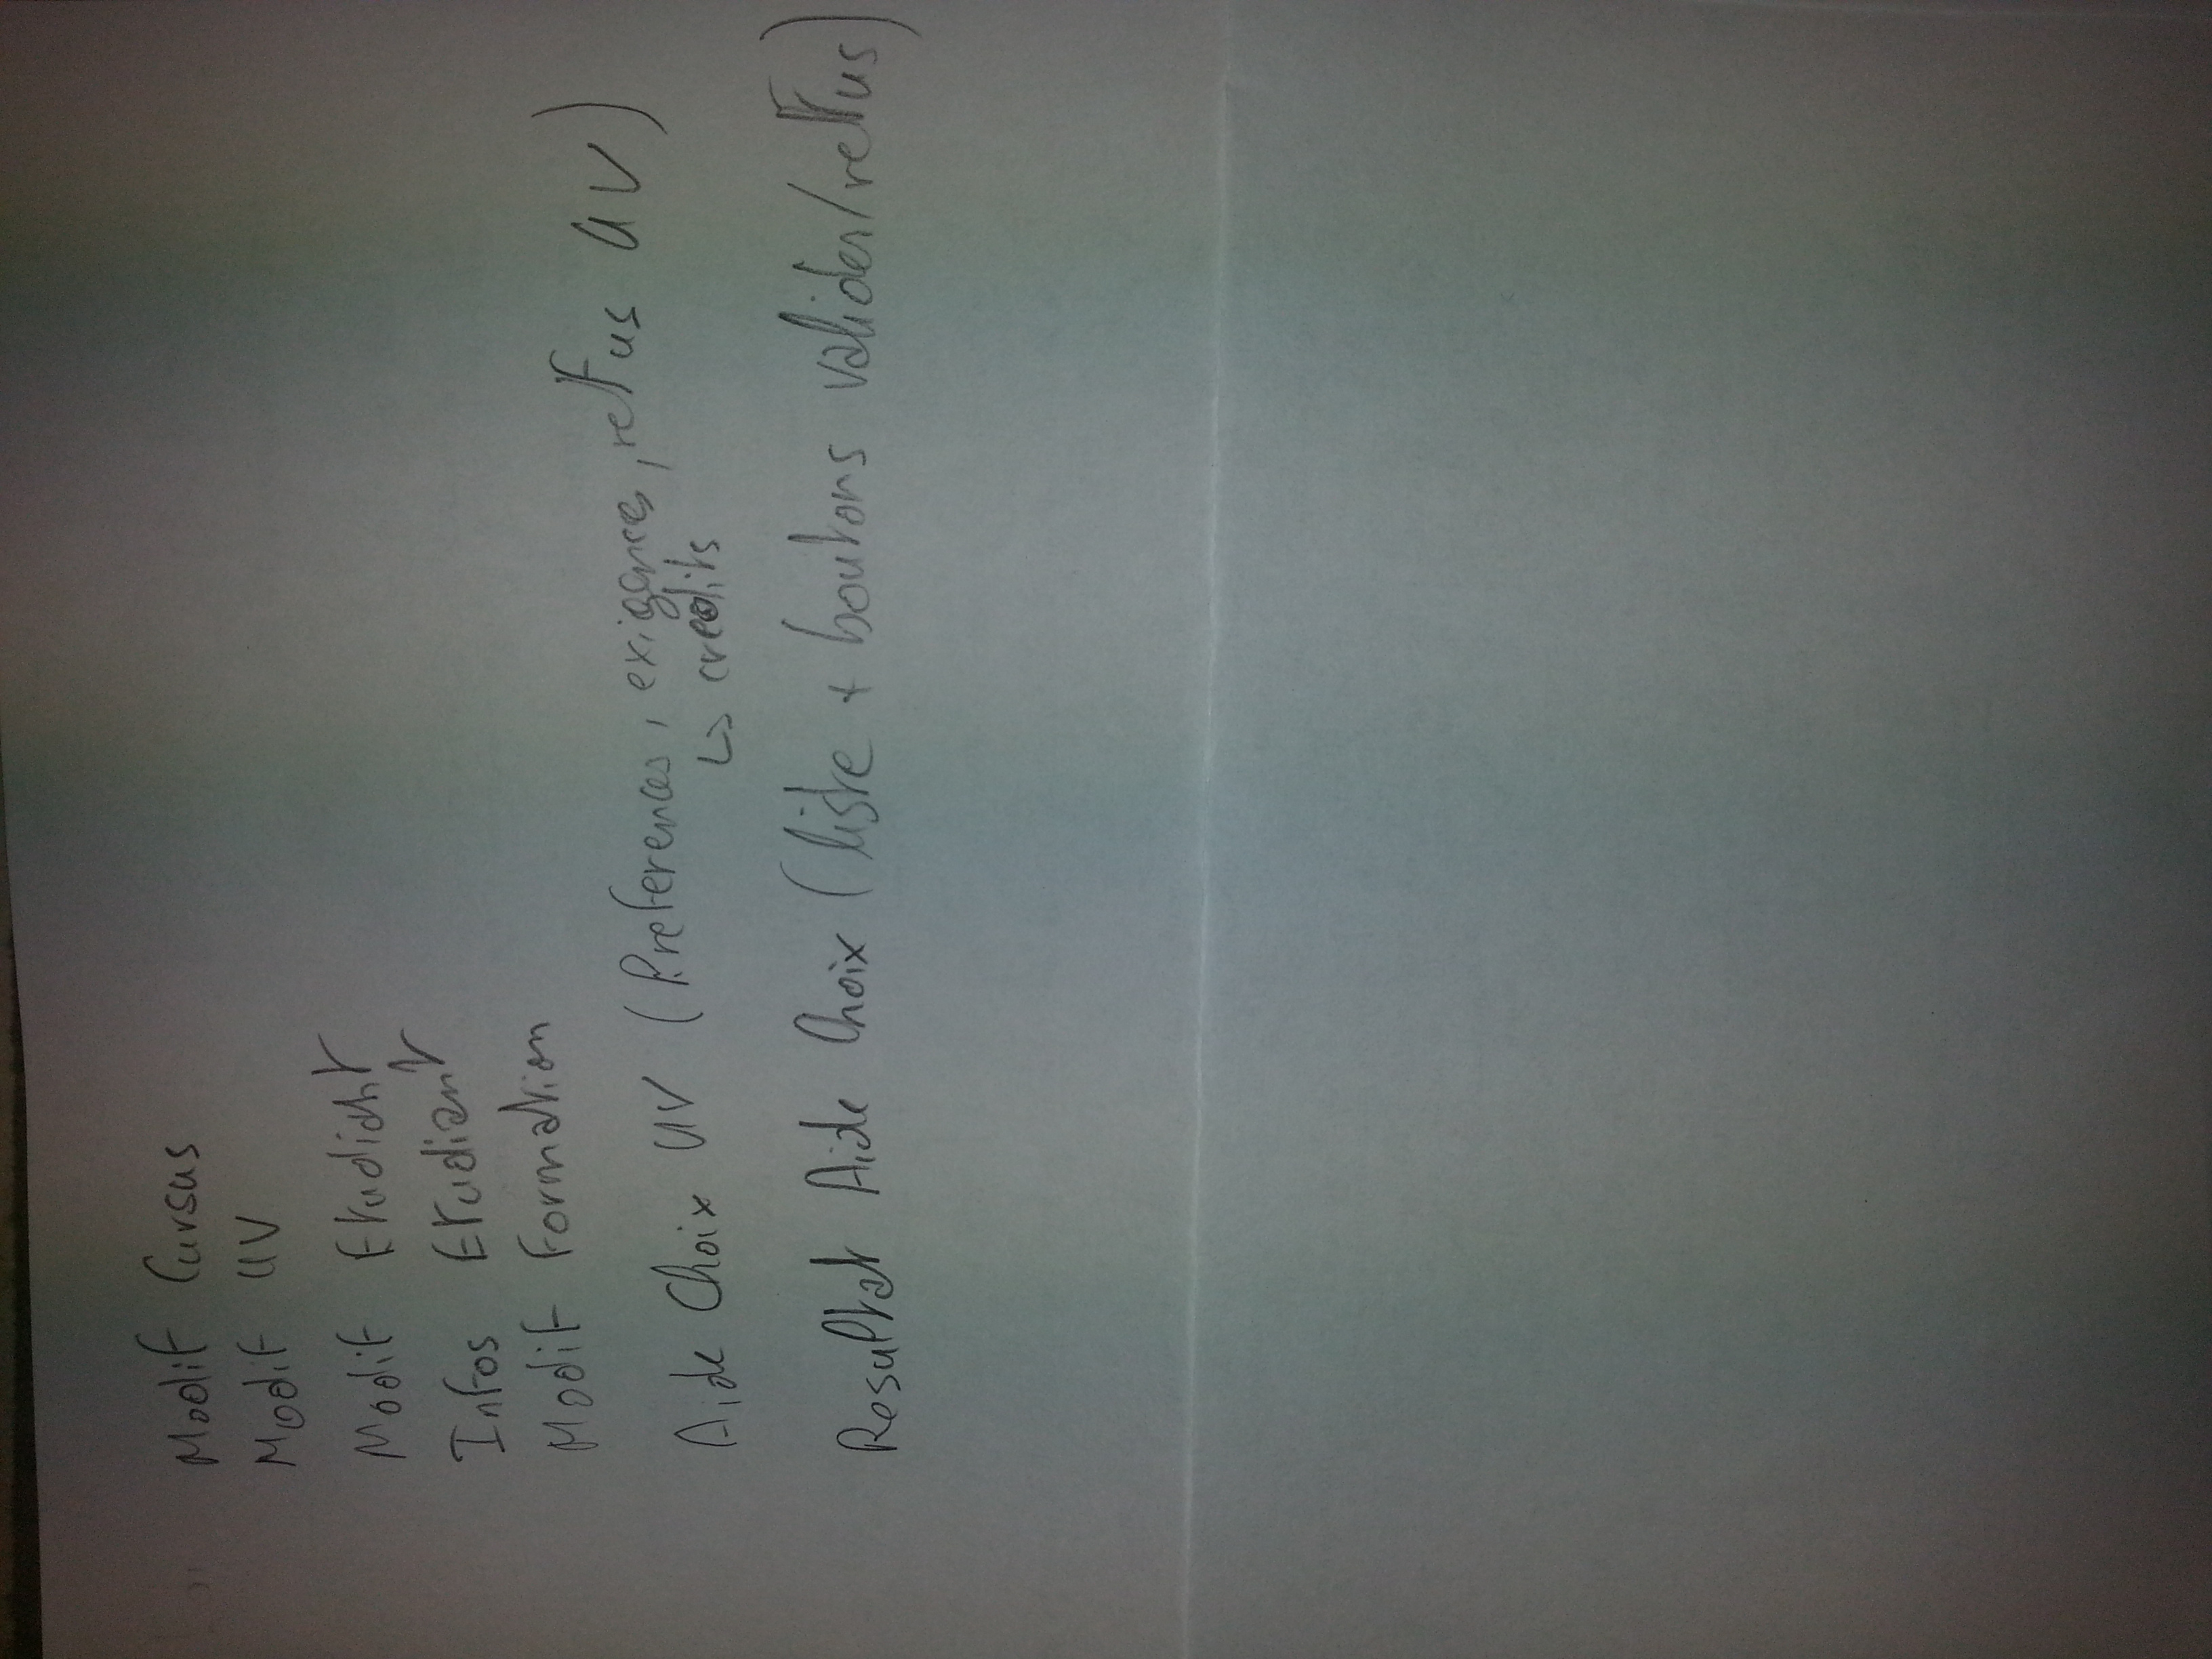 Modif Cursus
Modif UV
Modif Etudiant
Infos Etudiant
Modif Formation
Aide Choix UV (Preferences, exigences, refus UV)
↳ credits
Resultat Aide Choix (liste + boutons valider/refus)